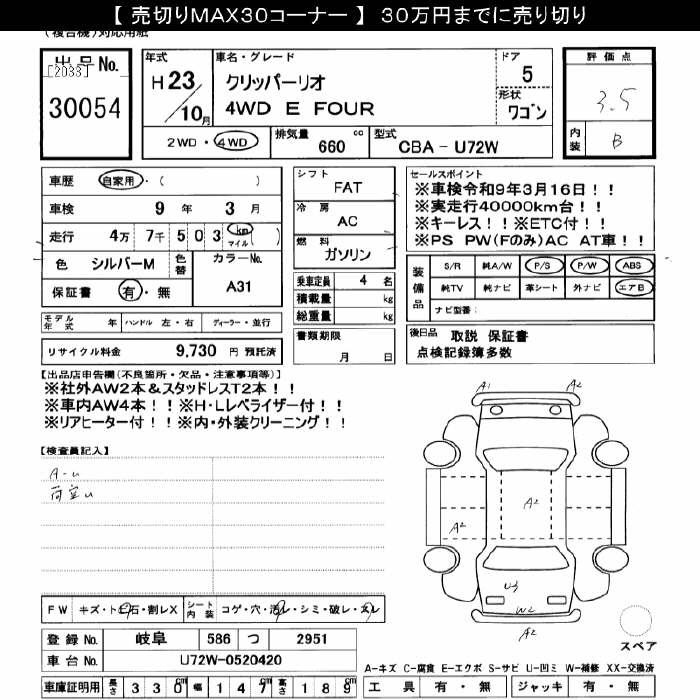 【 売切りMAX30コーナー 】 30万円までに売り切り
(複合機)対応用紙
出品No.
[2033]
30054
年式
H 23
/10月
車名・グレード
クリッパーリオ
4WD E FOUR
ドア
5
形状
ワゴン
2WD・4WD
排気量 660 cc
型式 CBA - U72W
評価点
3.5
内装 B
車歴 自家用・( )
車検 9年 3月
走行 4万 7千 503 km マイル( )
色 シルバーM 色替
カラーNo.
A31
保証書 有・無
シフト
FAT
冷房
AC
燃料
ガソリン
乗車定員 4 名
積載量 kg
総重量 kg
セールスポイント
※車検令和9年3月16日!!
※実走行40000km台!!
※キーレス!!※ETC付!!
※PS PW(Fのみ)AC AT車!!
装備品
S/R 純A/W P/S P/W ABS
純TV 純ナビ 革シート 外ナビ エアB
ナビ型番:
モデル年式 年 ハンドル 左・右 ディーラー・並行
リサイクル料金 9,730 円 預託済
書類期限
月 日
後日品 取説 保証書
点検記録簿多数
【出品店申告欄(不良箇所・欠品・注意事項等)】
※社外AW2本&スタッドレスT2本!!
※車内AW4本!!※H・Lレベライザー付!!
※リアヒーター付!!※内・外装クリーニング!!
【検査員記入】
A-U
荷室U
A1 A2
A2
A2
U3
W2
A2
スペア
FW キズ・トビ石・割レX
シート内装 コゲ・穴・汚レ・シミ・破レ・スレ
登録No. 岐阜 586 つ 2951
車台No. U72W-0520420
車庫証明用 長さ 330cm 幅 147cm 高さ 189cm
A-キズ C-腐食 E-エクボ S-サビ U-凹ミ W-補修 XX-交換済
工具 有・無 ジャッキ 有・無